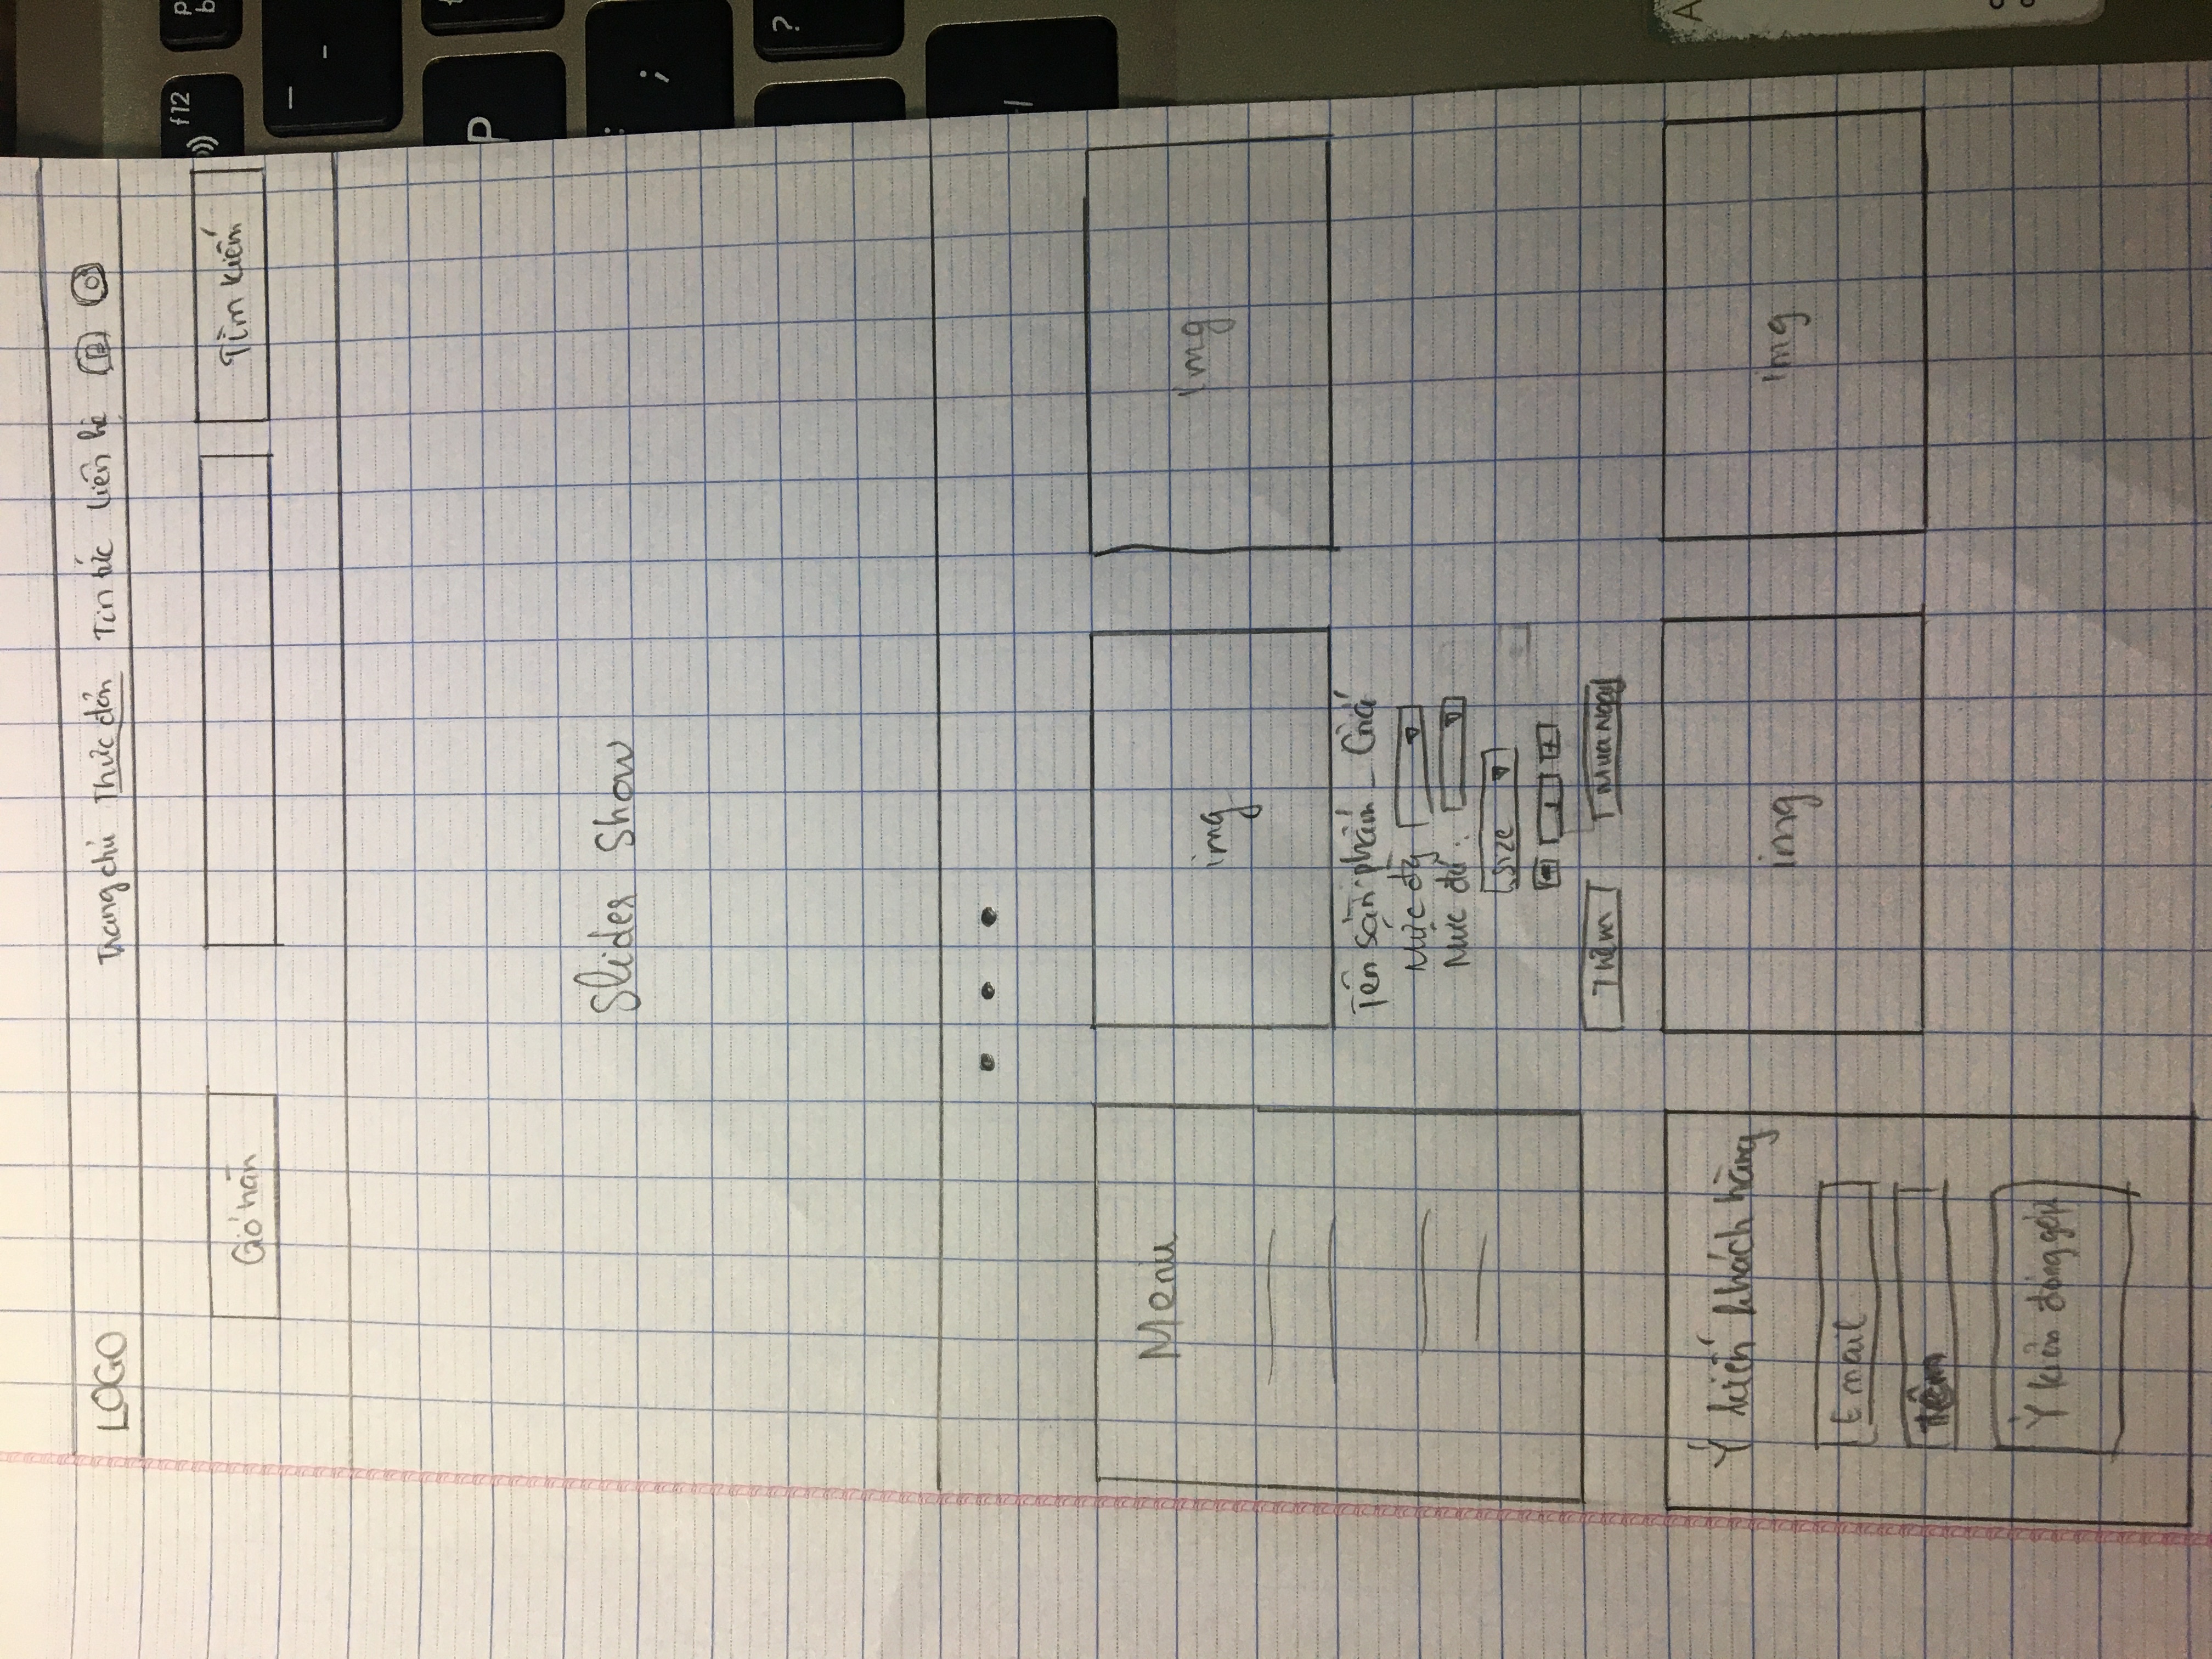 LOGO Trang chủ Thực đơn Tin tức Liên hệ
Giỏ hàn Tìm kiếm
Slider Show
Menu
img
img
Tên sản phẩm - Giá
Mức đ
Mức đ :
size
- 1 +
Thêm Mua ngay
Ý kiến khách hàng
img
img
Email
Tên
Ý kiến đóng góp
f12
P
b
—
-
P
:
;
?
A